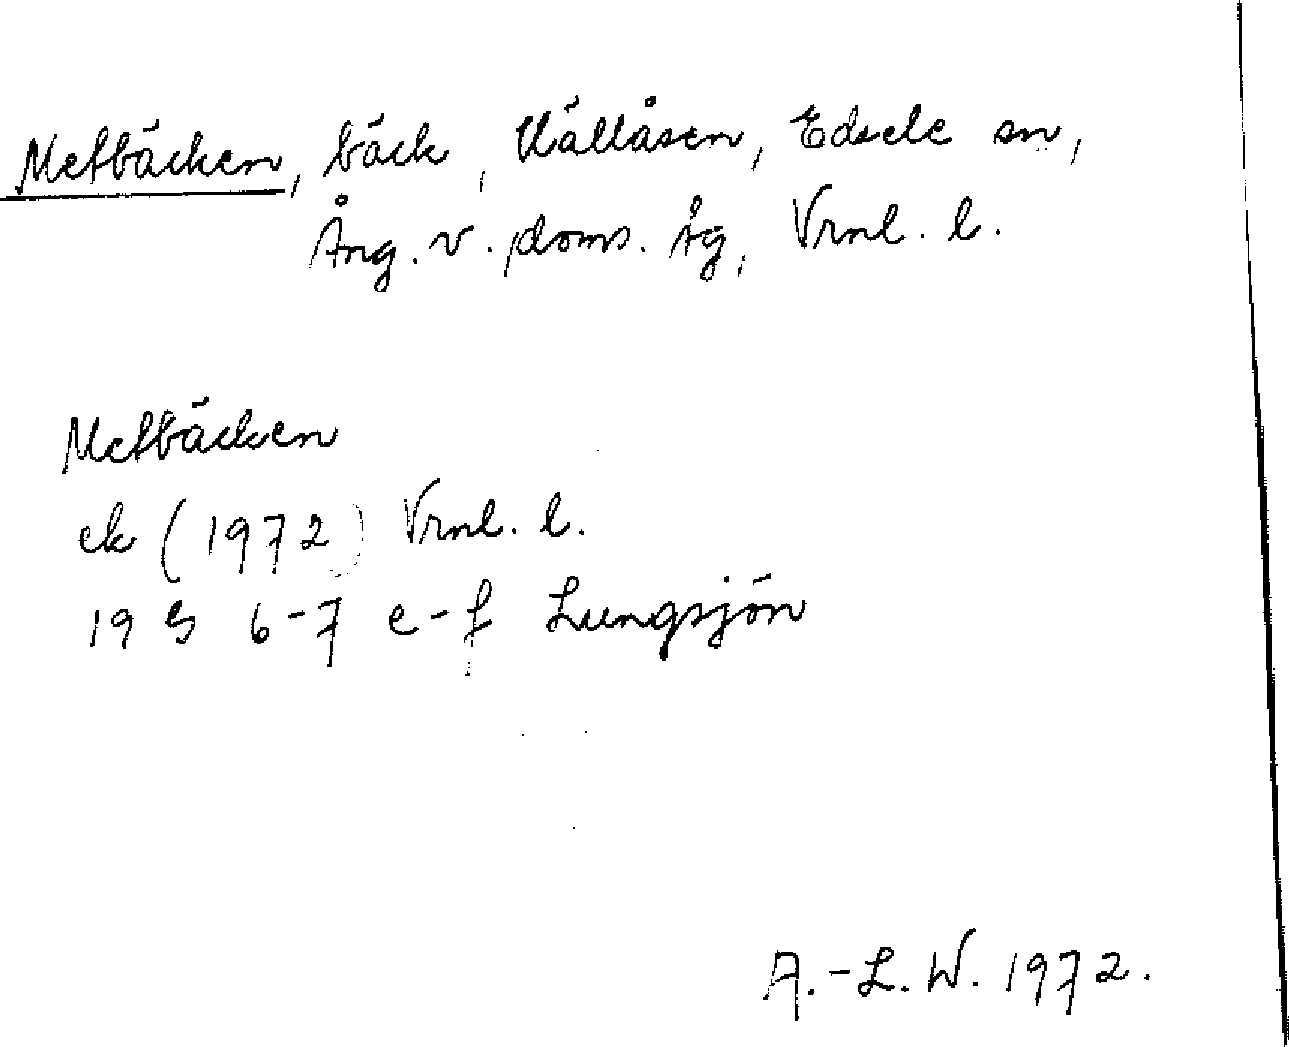 Metbäcken, bäck, Källåsen, Edsele sn,
Ång. v. doms. tg, Vrnl. l.
Metbäcken
ek (1972) Vrnl. l.
19 G 6-7 e-f Lungsjön
A.-L. W. 1972.